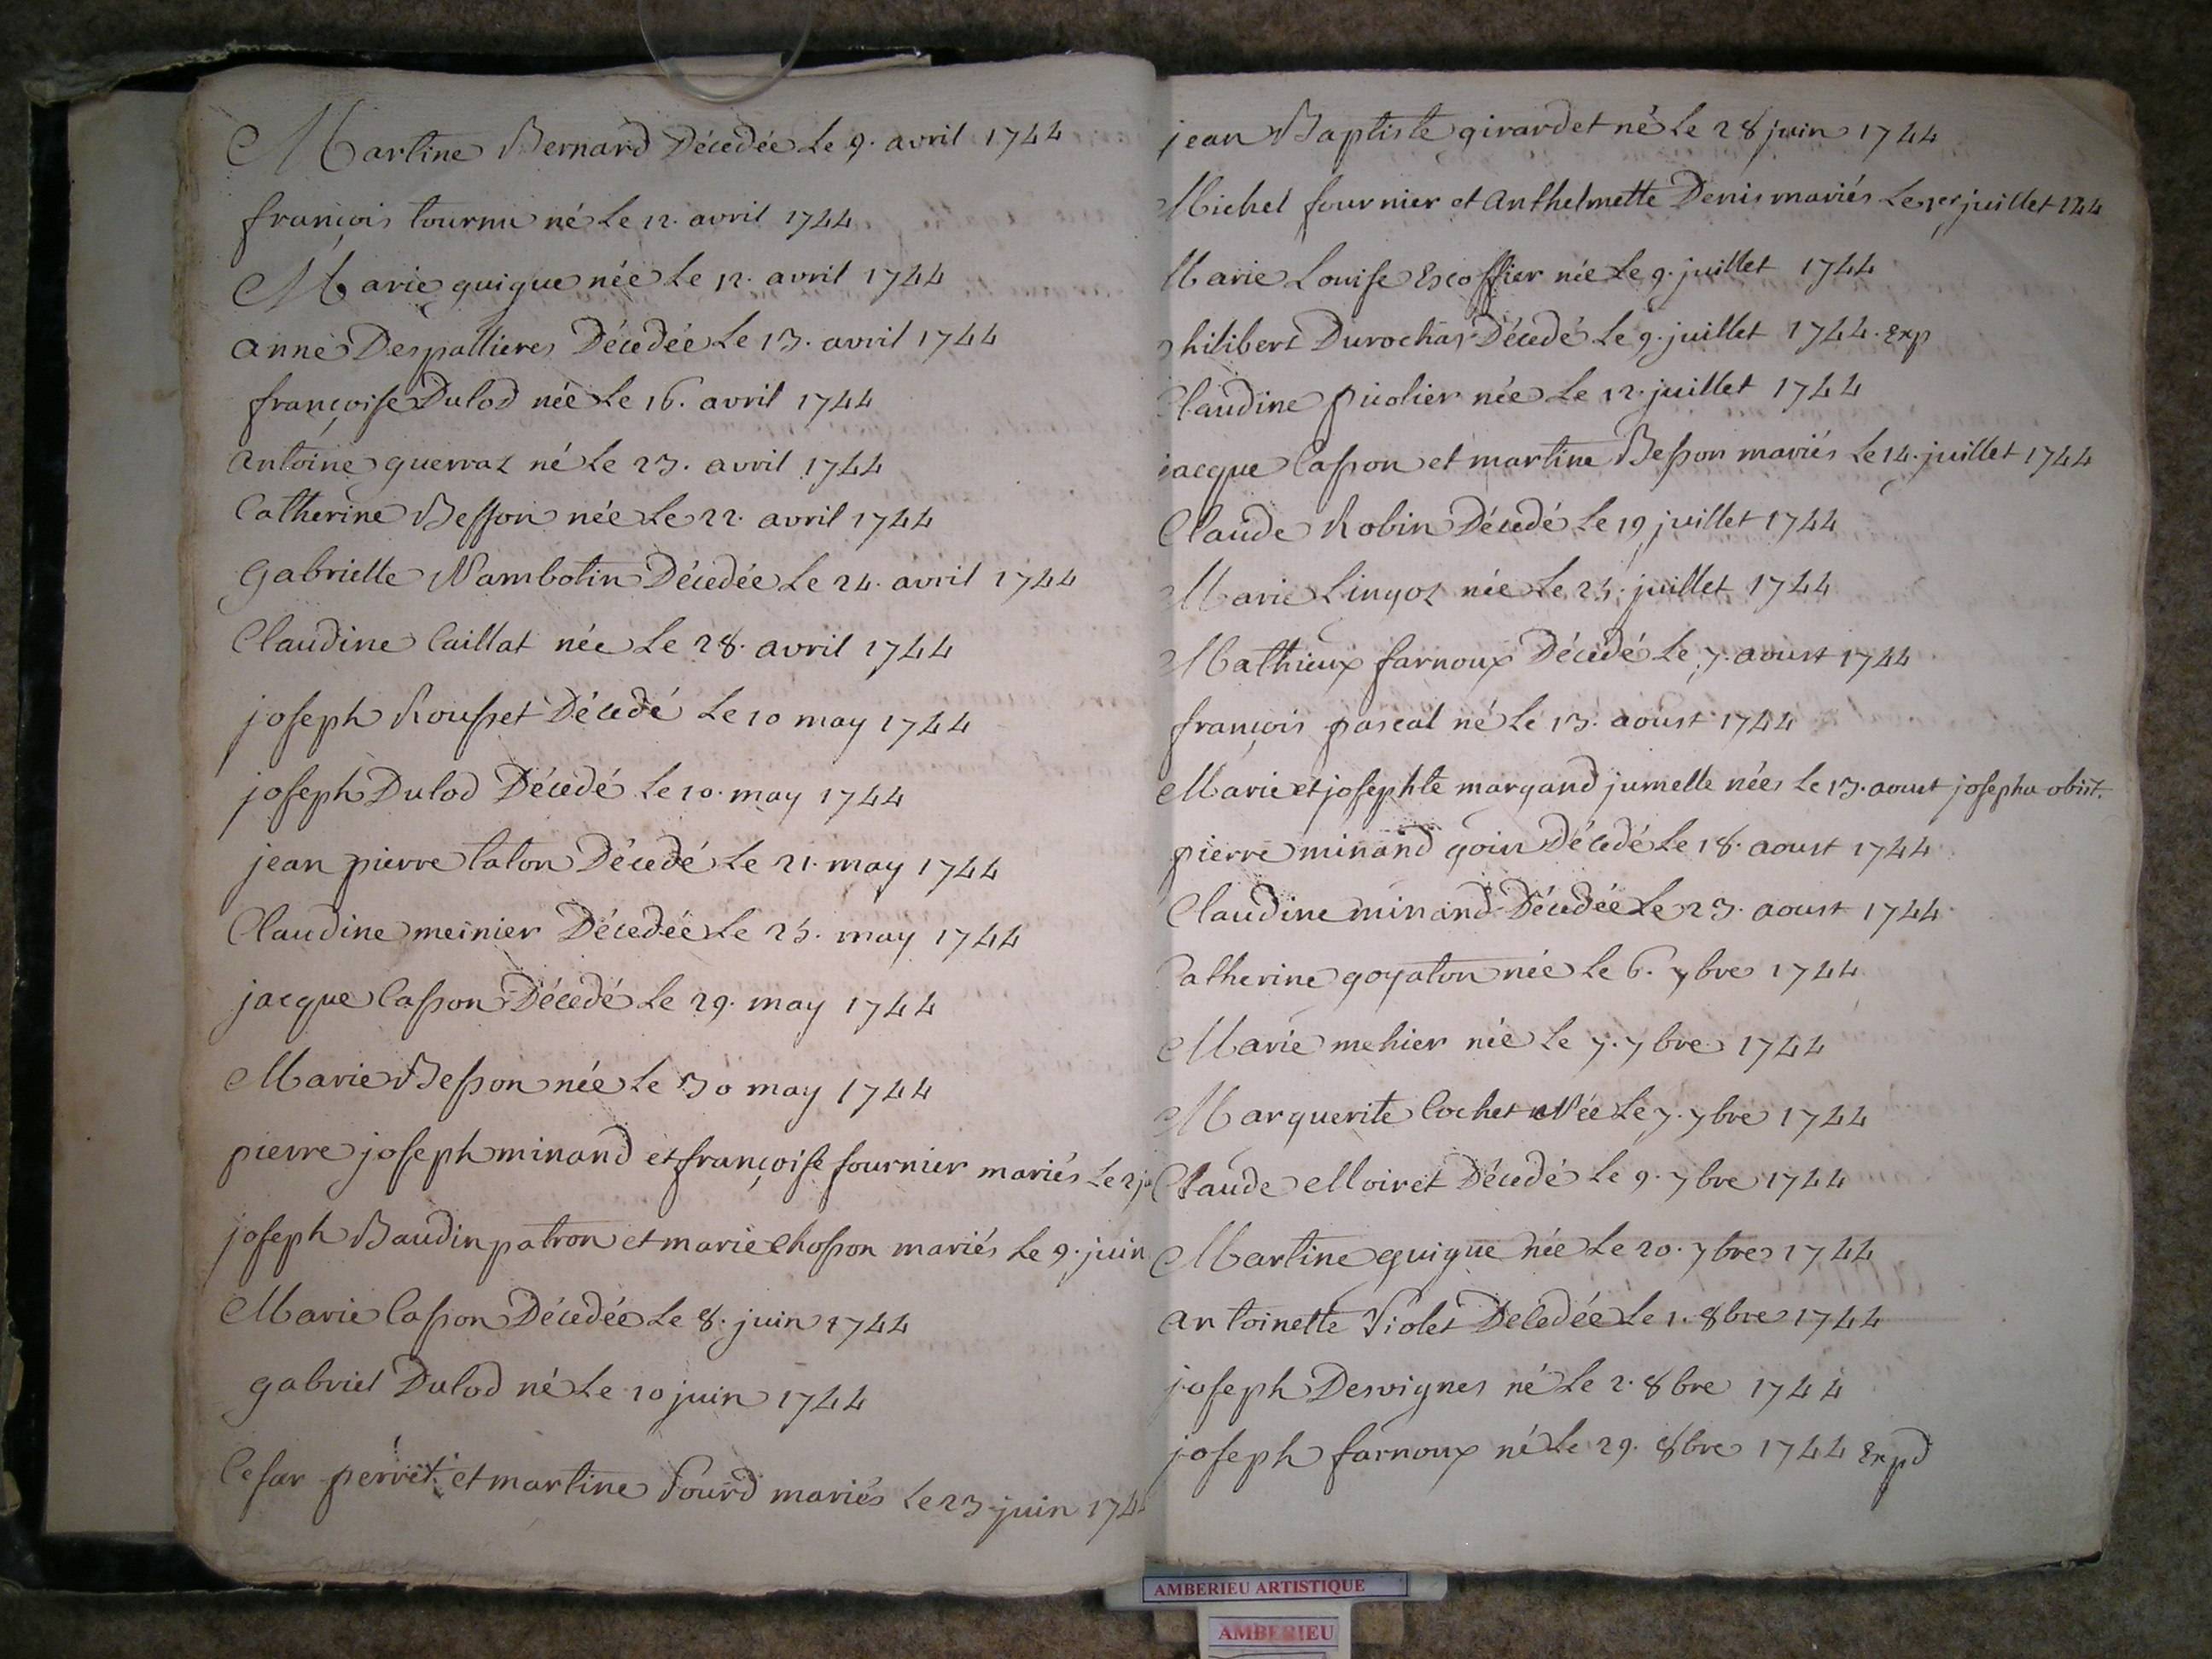 Martine Bernard Décedée Le 9. avril 1744
françois tournu né Le 12. avril 1744
Marie guigue née Le 12. avril 1744
anne Despallieres Décedée Le 13. avril 1744
françoise Dulod née Le 16. avril 1744
antoine guerraz né Le 23. avril 1744
Catherine Besson née Le 22. avril 1744
Gabrielle Nambotin Décedée Le 24. avril 1744
Claudine Caillat née Le 28. avril 1744
joseph Rousset Décedé Le 10 may 1744
joseph Dulod Décedé Le 10. may 1744
jean pierre talon Décedé Le 21. may 1744
Claudine meinier Décedée Le 25. may 1744
jacque Casson Décedé Le 29. may 1744
Marie Besson née Le 30 may 1744
pierre joseph minand et françoise fournier mariés Le 2
joseph Baudin patron et marie Chosson mariés Le 9. juin
Marie Casson Décedée Le 8. juin 1744
gabriel Dulod né Le 10 juin 1744
Cesar perret et martine Sourd mariés Le 23 juin 174
jean Baptiste girardet né Le 28 juin 1744
Michel fournier et anthelmette Denis mariés Le 1er juillet 1744
Marie Louise Escoffier née Le 9. juillet 1744
philibert Durochat Décedé Le 9. juillet 1744. Exp
Claudine picolier née Le 12. juillet 1744
jacque Casson et martine Besson mariés Le 14. juillet 1744
Claude Robin Décedé Le 19 juillet 1744
Marie Lingoz née Le 25. juillet 1744
Mathieux farnoux Décedé Le 7. aoust 1744
françois pascal né Le 13. aoust 1744
Marie et josephte margand jumelle nées Le 13. aoust josepha obiit.
pierre minand goin Décedé Le 18. aoust 1744
Claudine minand Décedée Le 23. aoust 1744
Catherine goyaton née Le 6. 7bre 1744
Marie mehier née Le 7. 7bre 1744
Marguerite Cochet Née Le 7. 7bre 1744
Claude Moiret Décedé Le 9. 7bre 1744
Martine guigue née Le 20. 7bre 1744
antoinette Violet Decedée Le 1. 8bre 1744
joseph Desvignes né Le 2. 8bre 1744
joseph farnoux né Le 29. 8bre 1744 Expd
AMBERIEU ARTISTIQUE
AMBERIEU